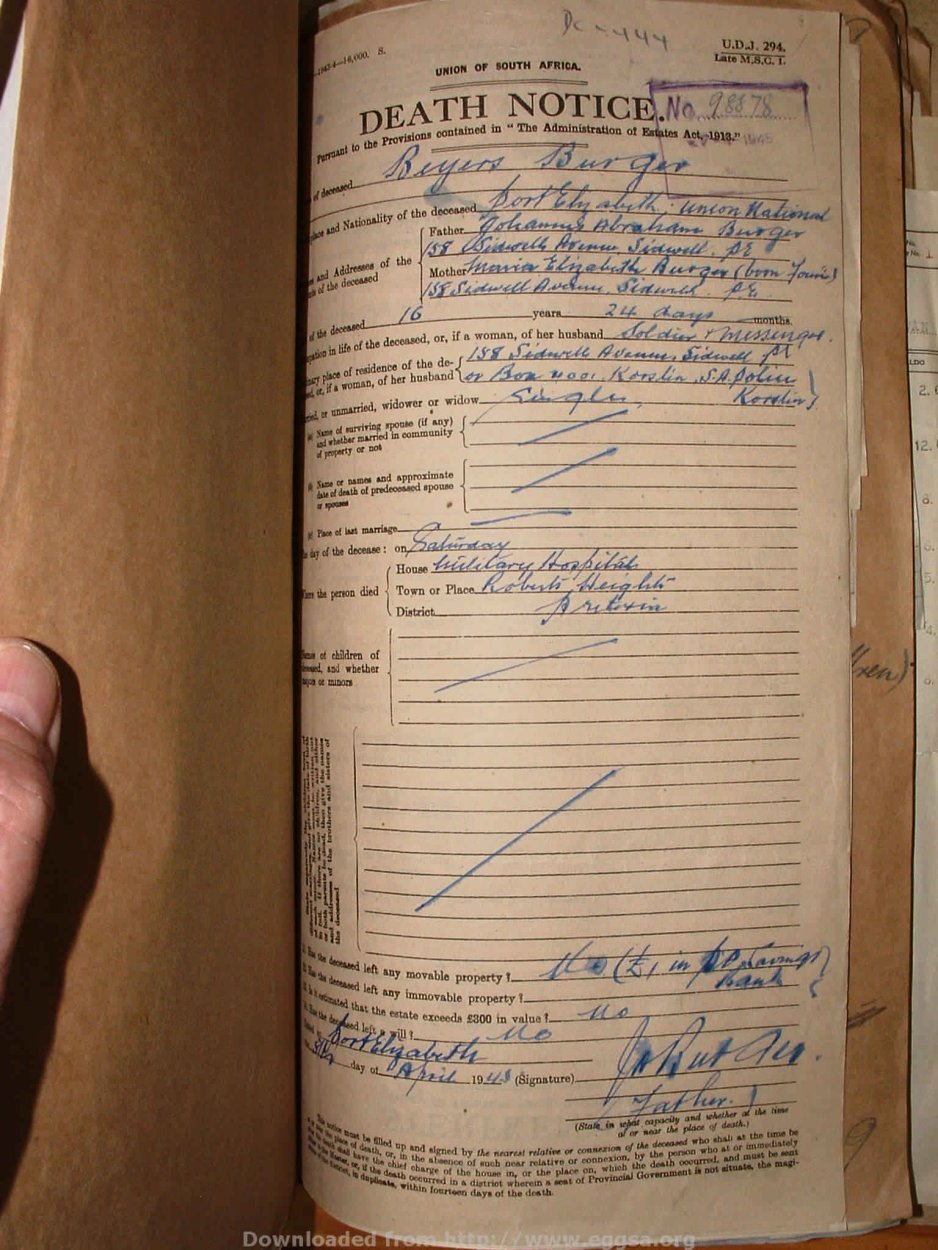 Dc - 444
-1943-4—16,000. S.
U.D.J. 294.
Late M.S.C. 1.
UNION OF SOUTH AFRICA.
DEATH NOTICE.
No. 98878
Pursuant to the Provisions contained in "The Administration of Estates Act, 1913."
of deceased Beyers Burger
and Nationality of the deceased Port Elizabeth, Union National
Father Johannes Abraham Burger
158 Sidwell Avenue Sidwell. PE
and Addresses of the
of the deceased
Mother Maria Elizabeth Burger (born
158 Sidwell Avenue, Sidwell. P.E.
of the deceased 16 years 24 days months.
in life of the deceased, or, if a woman, of her husband Soldier + messenger.
place of residence of the de-
or, if a woman, of her husband
158 Sidwell Avenue, Sidwell PE
or Box Korsten, S.A. Police
Korsten
or unmarried, widower or widow Single,
Name of surviving spouse (if any)
and whether married in community
of property or not
Name or names and approximate
date of death of predeceased spouse
or spouses
Place of last marriage
day of the decease: on Saturday
House Military Hospital
the person died
Town or Place Roberts Heights
District Pretoria
of children of
and whether
majors or minors
and addresses of the brothers and sisters of
the deceased
Has the deceased left any movable property? No (£1 in P.O. Savings
Bank
Has the deceased left any immovable property?
Is it estimated that the estate exceeds £300 in value? No
Has the deceased left a will? No
Port Elizabeth
day of April 1943 (Signature)
Father.
(State in what capacity and whether at the time
of or near the place of death.)
This notice must be filled up and signed by the nearest relative or connexion of the deceased who shall at the time be
the place of death, or, in the absence of such near relative or connexion, by the person who at or immediately
the death shall have the chief charge of the house in, or the place on, which the death occurred, and must be sent
the Master, or, if the death occurred in a district wherein a seat of Provincial Government is not situate, the magi-
in duplicate, within fourteen days of the death.
Downloaded from http://www.eggsa.org